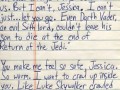 us. But I can't, Jessica, I can't
just...let you go. Even Darth Vader,
an evil Sith lord, couldn't leave his
son to die at the end of
Return of the Jedi.
You make me feel so safe, Jessica.
So warm. I want to crawl up inside
you, like Luke Skywalker crawled